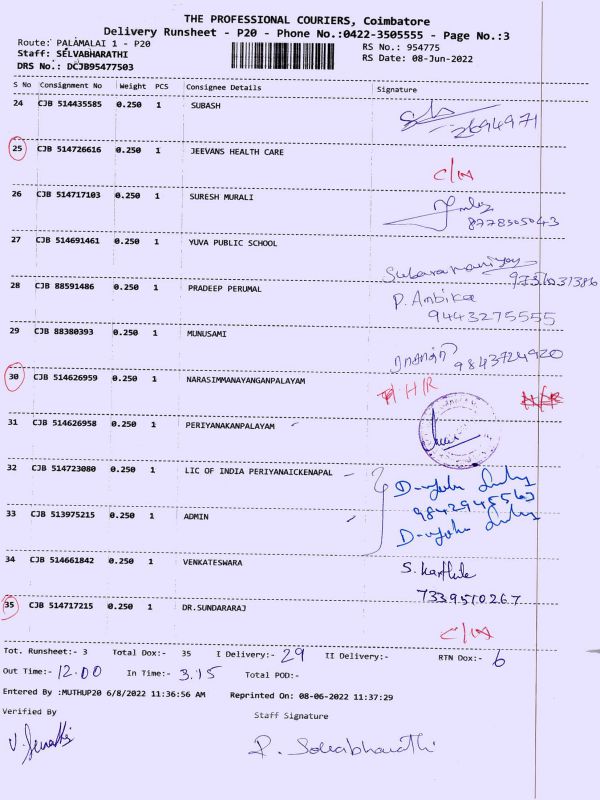 THE PROFESSIONAL COURIERS, Coimbatore
Delivery Runsheet - P20 - Phone No.:0422-3505555 - Page No.:3
Route: PALAMALAI 1 - P20
RS No.: 954775
Staff: SELVABHARATHI
RS Date: 08-Jun-2022
DRS No.: DCJB95477503
S No Consignment No Weight PCS Consignee Details Signature
24 CJB 514435585 0.250 1 SUBASH
2694971
25 CJB 514726616 0.250 1 JEEVANS HEALTH CARE
C/N
26 CJB 514717103 0.250 1 SURESH MURALI
8778505043
27 CJB 514691461 0.250 1 YUVA PUBLIC SCHOOL
28 CJB 88591486 0.250 1 PRADEEP PERUMAL
P. Ambika
9443275555
29 CJB 88380393 0.250 1 MUNUSAMI
9843724920
30 CJB 514626959 0.250 1 NARASIMMANAYANGANPALAYAM
H/R
31 CJB 514626958 0.250 1 PERIYANAKANPALAYAM
32 CJB 514723080 0.250 1 LIC OF INDIA PERIYANAICKENAPAL
9842945563
33 CJB 513975215 0.250 1 ADMIN
34 CJB 514661842 0.250 1 VENKATESWARA
S. Karthik
7339510267
35 CJB 514717215 0.250 1 DR.SUNDARARAJ
C/N
Tot. Runsheet:- 3 Total Dox:- 35 I Delivery:- 29 II Delivery:- RTN Dox:- 6
Out Time:- 12.00 In Time:- 3.15 Total POD:-
Entered By :MUTHUP20 6/8/2022 11:36:56 AM Reprinted On: 08-06-2022 11:37:29
Verified By Staff Signature